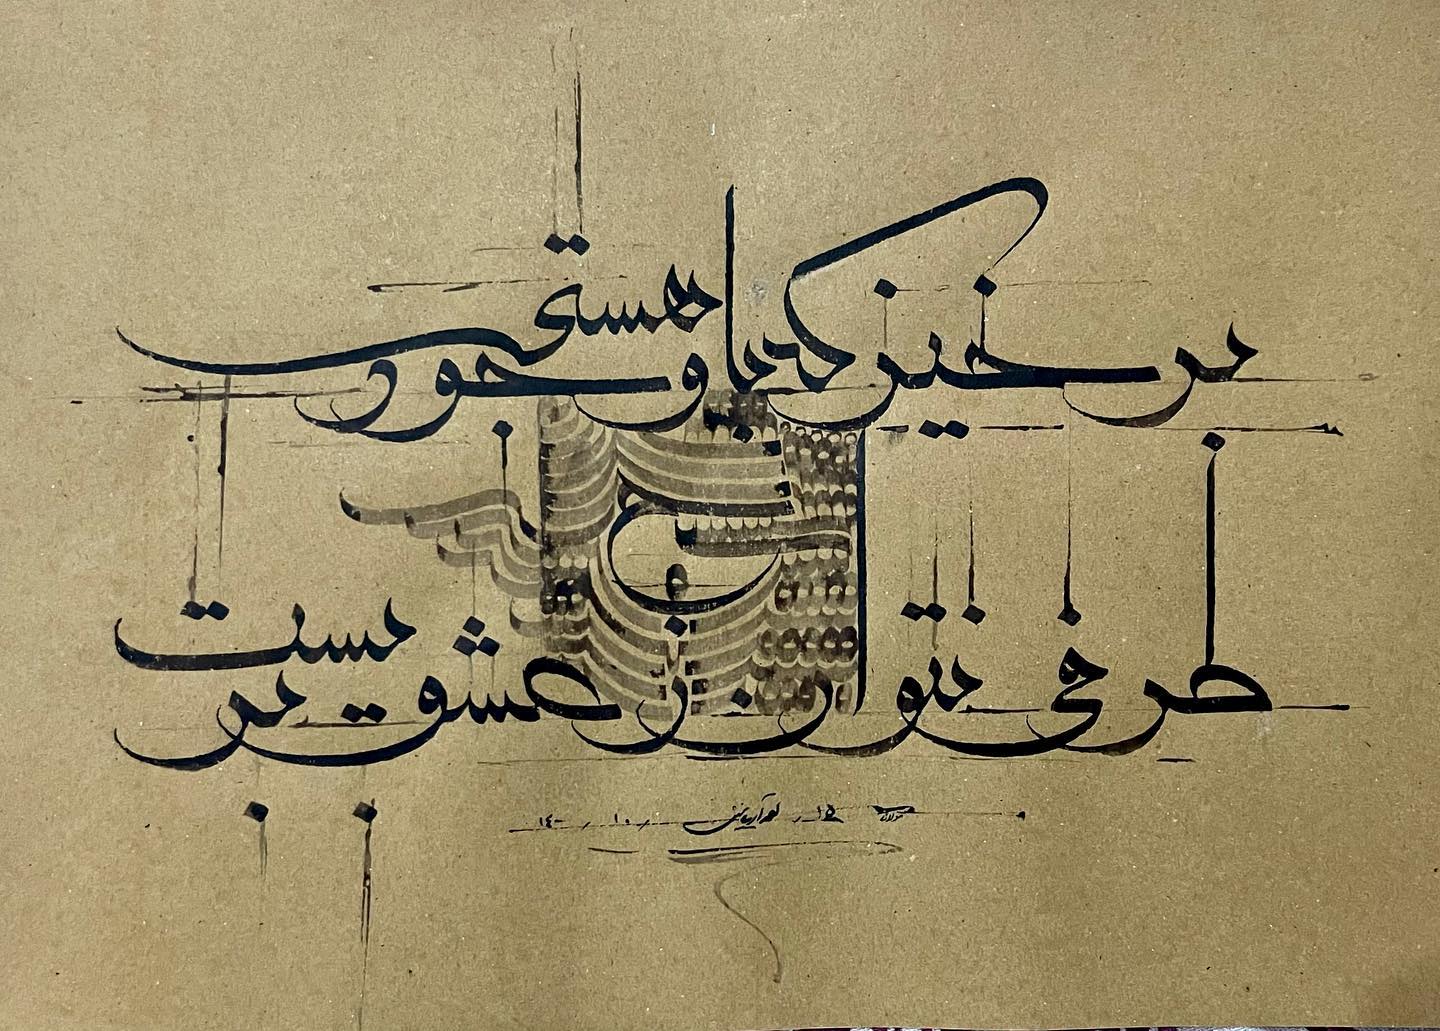 بر خیز که با وجود هستی
طرفی نتوان ز عشق بر بست
مولانا